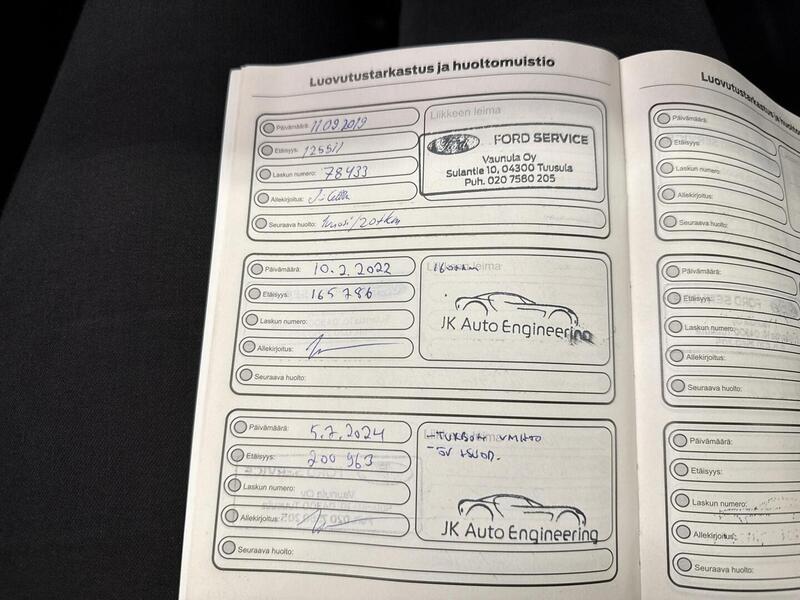 Luovutustarkastus ja huoltomuistio
Päivämäärä: 11.09.2019
Etäisyys: 125511
Laskun numero: 78433
Allekirjoitus:
Seuraava huolto: 1vuosi/20tkm
Liikkeen leima
Ford FORD SERVICE
Vaunula Oy
Sulantie 10, 04300 Tuusula
Puh. 020 7580 205
Päivämäärä: 10.2.2022
Etäisyys: 165786
Laskun numero:
Allekirjoitus:
Seuraava huolto:
Liikkeen leima
JK Auto Engineering
Päivämäärä: 5.7.2024
Etäisyys: 200 963
Laskun numero:
Allekirjoitus:
Seuraava huolto:
-TURBON VAIHTO
JK Auto Engineering
Luovutustarkastus ja
Päivämäärä:
Etäisyys:
Laskun numero:
Allekirjoitus:
Seuraava huolto:
Päivämäärä:
Etäisyys:
Laskun numero:
Allekirjoitus:
Seuraava huolto:
Päivämäärä:
Etäisyys:
Laskun numero:
Allekirjoitus:
Seuraava huolto: